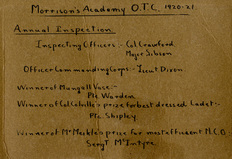 Morrison's Academy O.T.C. 1920-21.
Annual Inspection
Inspecting Officers - Col Crawford
Major Gibson
Officer Commanding Corps - Lieut. Dixon
Winner of Mungall Vase -
Pte Warden
Winner of Col Colville's prize for best dressed Cadet -
Pte. Shipley.
Winner of Mr prize for most efficient N.C.O.
Sergt McIntyre